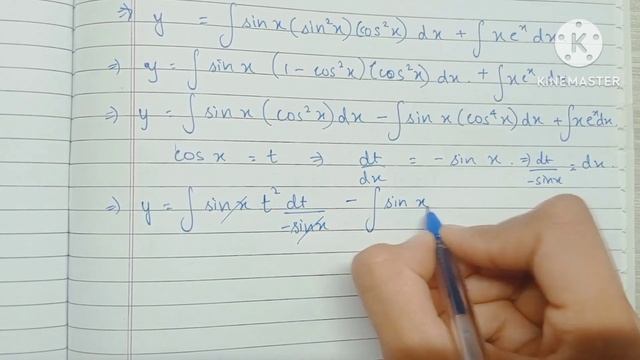 ⇒ y = ∫ sin x (sin²x) (cos²x) dx + ∫ x eˣ dx
⇒ y = ∫ sin x (1 - cos²x) (cos²x) dx + ∫ x eˣ dx
KINEMASTER
⇒ y = ∫ sin x (cos²x) dx - ∫ sin x (cos⁴x) dx + ∫ x eˣ dx
cos x = t ⇒ dt/dx = - sin x. ⇒ dt/-sin x = dx.
⇒ y = ∫ sin x t² dt/-sin x - ∫ sin x